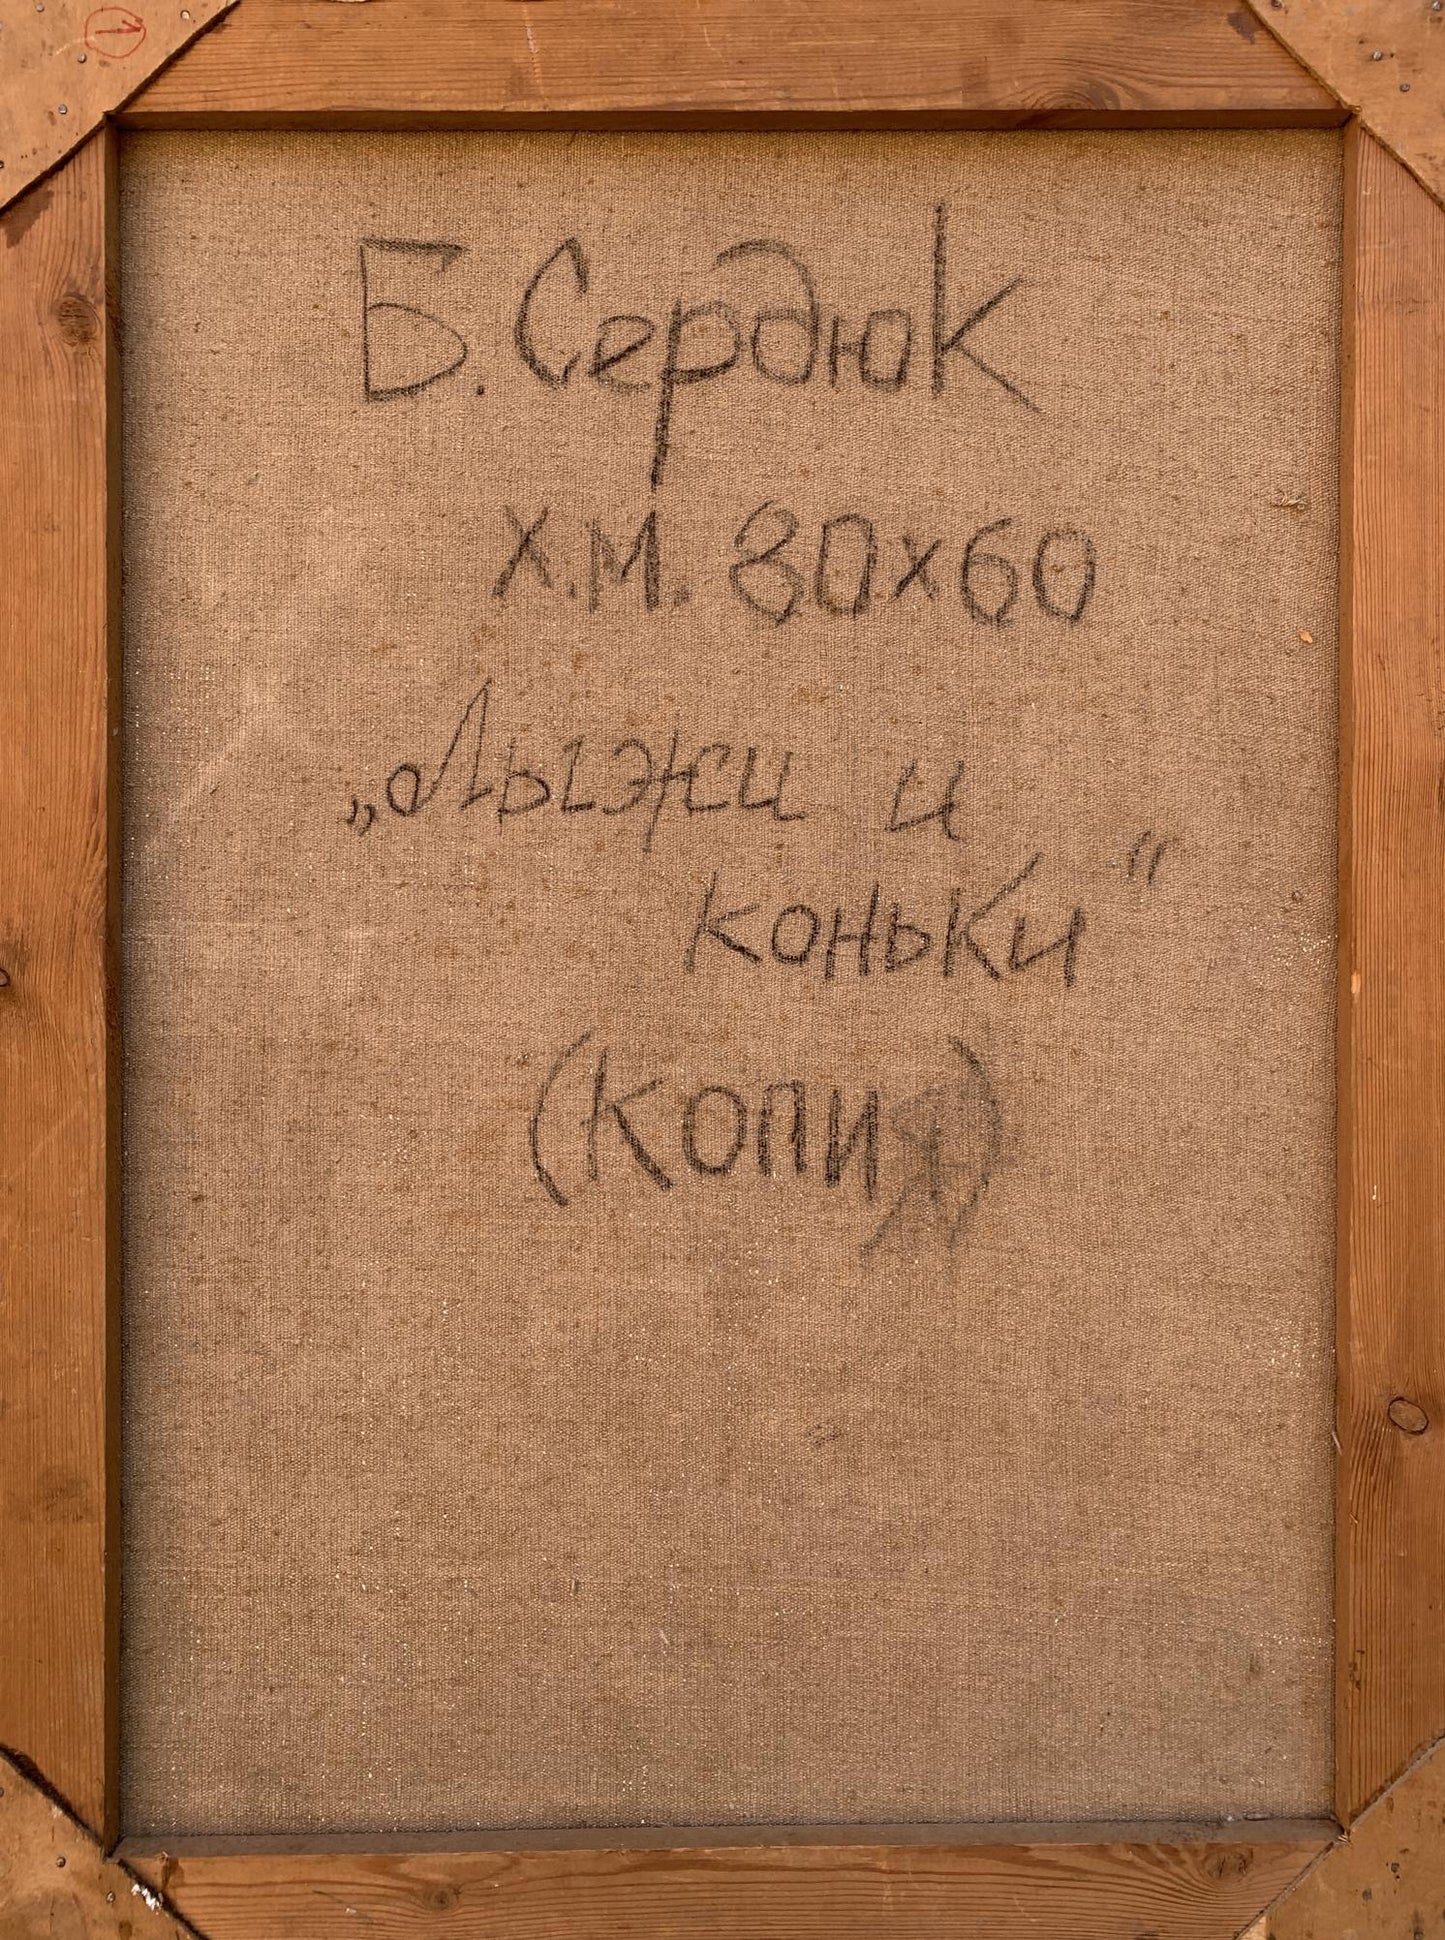 Б. Сердюк
х.м. 80х60
„Лыжи и
коньки“
(копия)